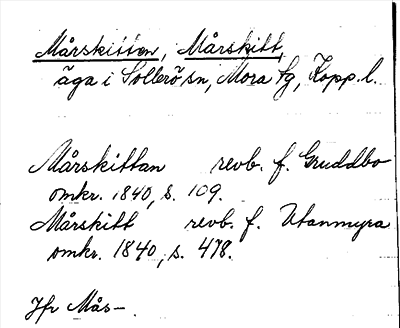 Mårskitten, Mårskitt,
äga i Sollerö sn, Mora fg, Kopp. l.
Mårskittan revb. f. Gruddbo
omkr. 1840, s. 109.
Mårskitt revb. f. Utanmyra
omkr. 1840, s. 478.
Jfr Mås-